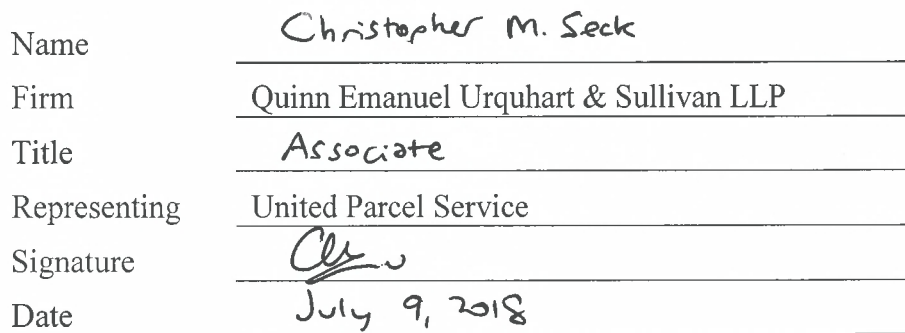 Name Christopher M. Seck
Firm Quinn Emanuel Urquhart & Sullivan LLP
Title Associate
Representing United Parcel Service
Signature
Date July 9, 2018